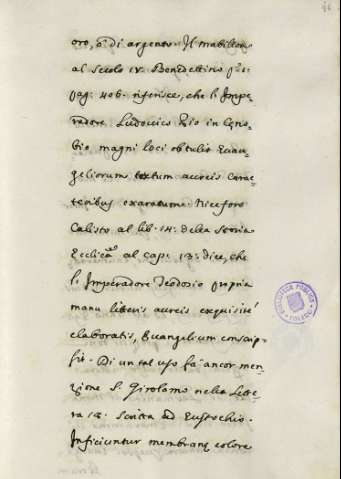 oro, o di argento. Il Mabillon
al secolo IV. Benedettino
pag: 406. riferisce, che l'Impe=
radore Ludovico Pio in Cęno=
bio magni loci obtulit Evan=
geliorum textum aureis carac=
teribus exaratum. Niceforo
Calisto al lib. 14. della Storia
Ecclica al cap: 13. dice, che
l'Imperadore Teodosio propria
manu litteris aureis exquisitè
elaboratis, Evangelium conscip=
sit. Di un tal uso fà ancor men=
zione S. Girolamo nella Lette=
ra 18. scritta ad Eustochio.
Inficiuntur membranę colore
BIBLIOTECA PUBLICA
TOLEDO